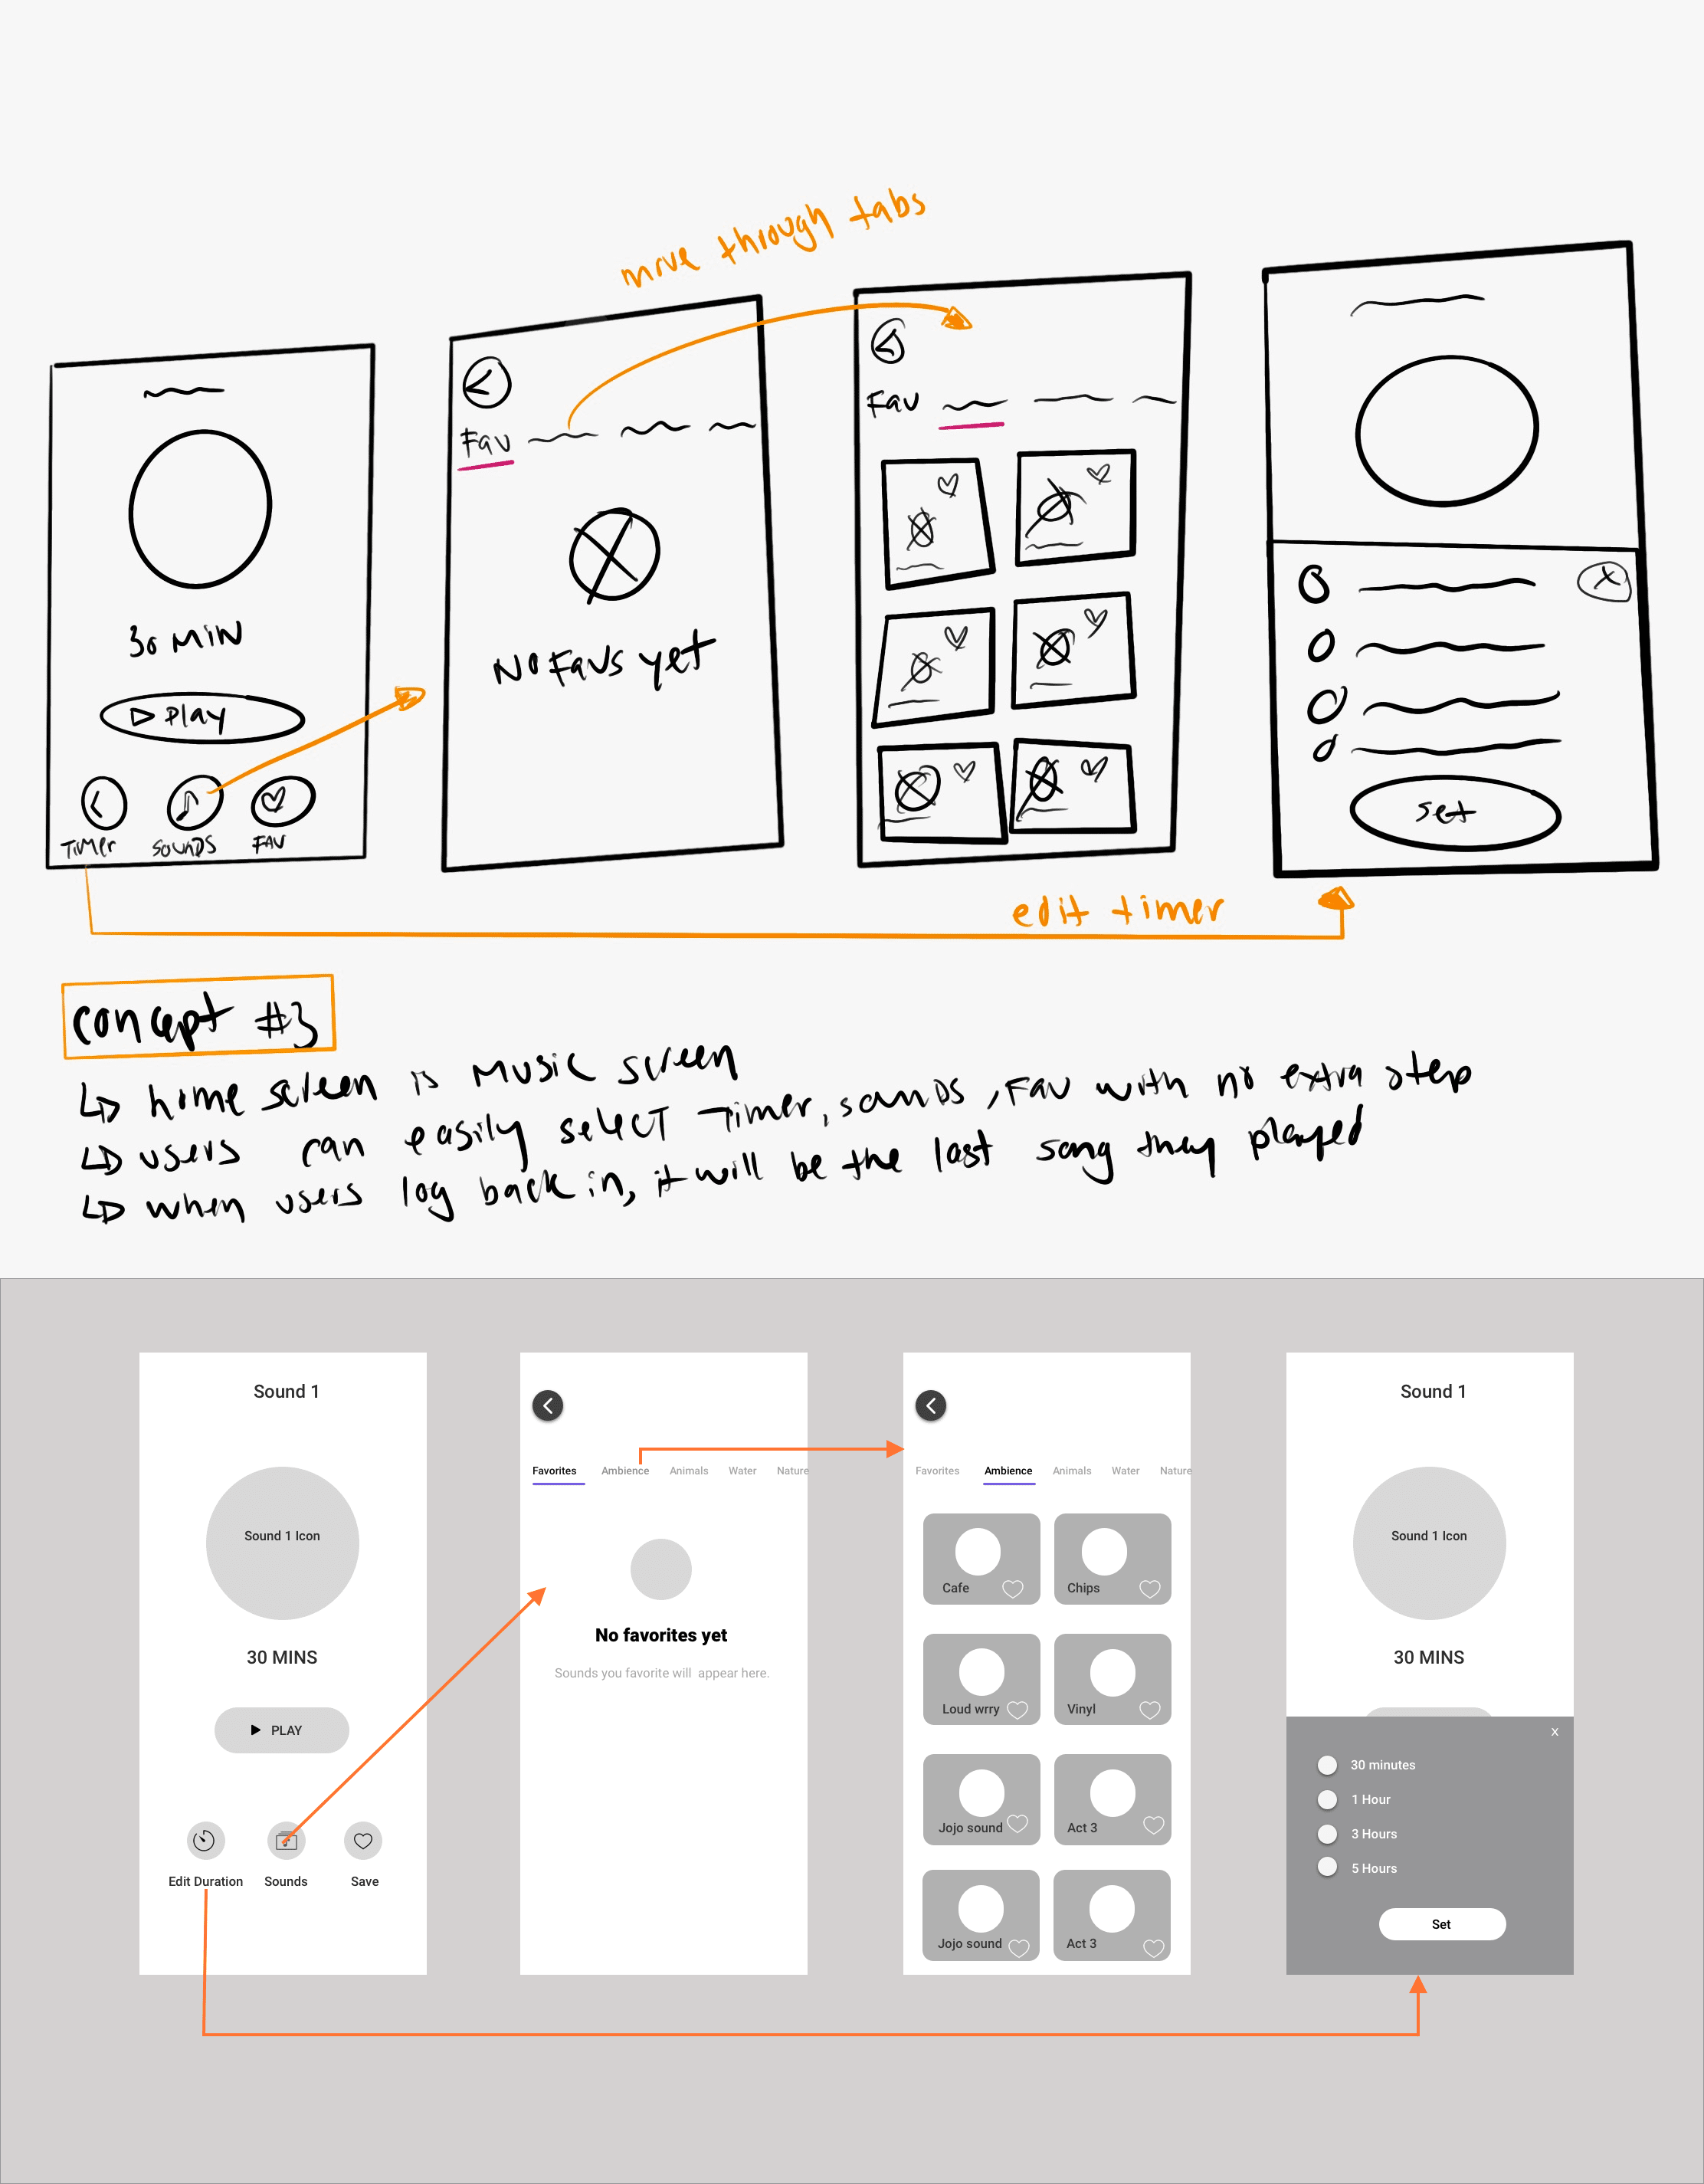 move through tabs
Fav
Fav
30 MIN
Play
No Favs yet
Timer
Sounds
FAV
Set
edit timer
concept #3
home screen is Music screen
users can easily select Timer, sounds, Fav with no extra step
when users log back in, it will be the last song they played
Sound 1
Sound 1 Icon
30 MINS
PLAY
Edit Duration
Sounds
Save
Favorites
Ambience
Animals
Water
Nature
No favorites yet
Sounds you favorite will appear here.
Favorites
Ambience
Animals
Water
Nature
Cafe
Chips
Loud wrry
Vinyl
Jojo sound
Act 3
Jojo sound
Act 3
Sound 1
Sound 1 Icon
30 MINS
X
30 minutes
1 Hour
3 Hours
5 Hours
Set